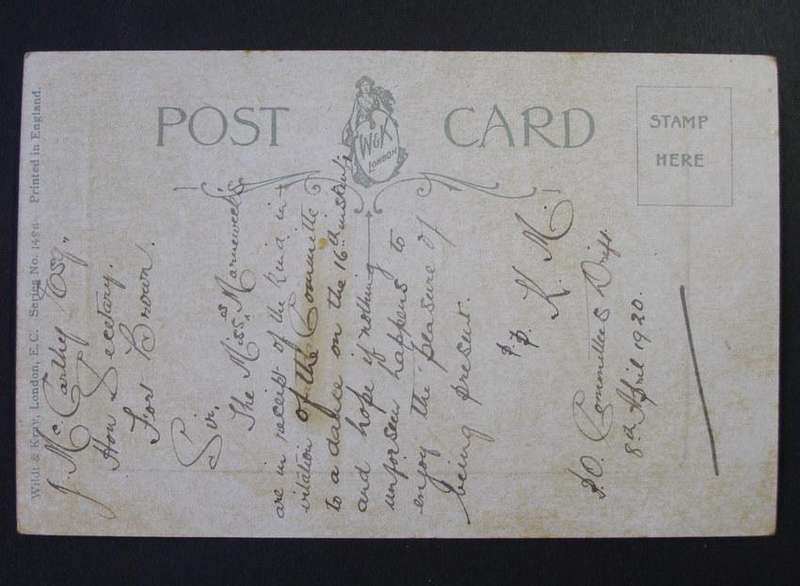 POST CARD
W&K
LONDON
STAMP
HERE
Wildt & Kray, London, E.C. Series No. 1496 Printed in England.
J. Mc. Carthy Esq.,
Hon Secetary.
Fort Brown.
Sir,
The Misses Marneweck's
are in receipt of the kind in-
vitation of the Committe
to a dance on the 16th instant
and hope if nothing
unforseen happens to
enjoy the pleasure of
being present.
p.p. K. M.
P.O. Committees Drift.
8th April 1920.